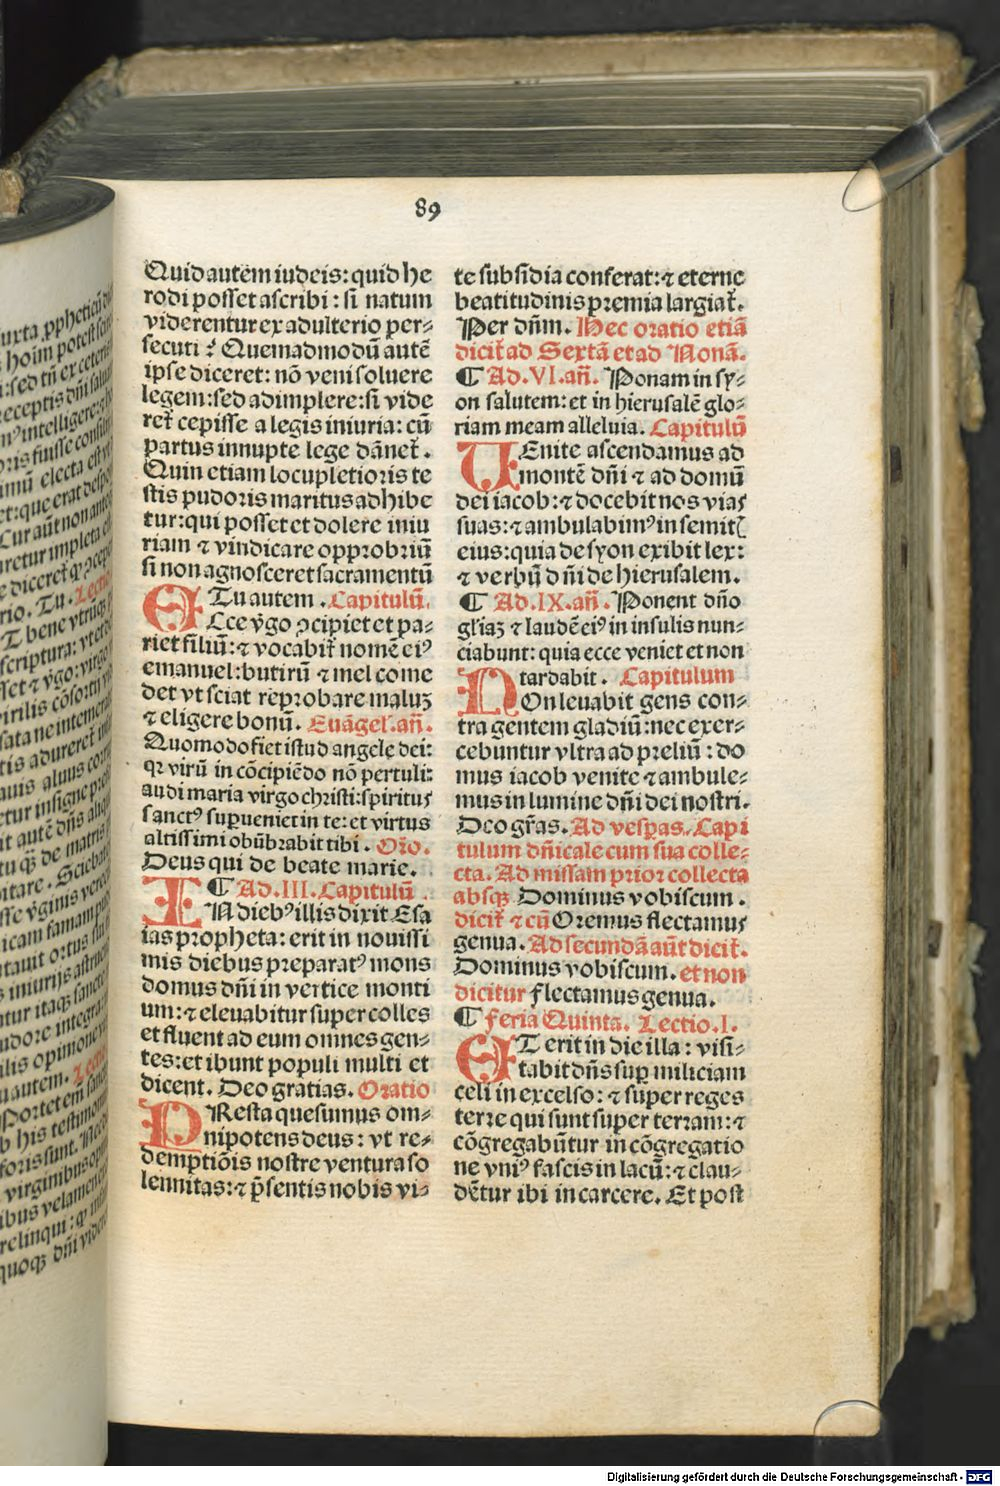 89
Quid autem iudeis: quid he
rodi posset ascribi: si natum
viderentur ex adulterio per⸗
secuti? Quemadmodū autē
ipse diceret: nō veni soluere
legem: sed adimplere: si vide
ret᷑ cepisse a legis iniuria: cū
partus innupte lege dānet᷑.
Quin etiam locupletioris te
stis pudoris maritus adhibe
tur: qui posset et dolere iniu
riam ⁊ vindicare opprobriū
si non agnosceret sacramentū
Tu autem. Capitulū.
Ecce v̾go ꝯcipiet et pa⸗
riet filiū: ⁊ vocabit᷑ nomē eiꝰ
emanuel: butirū ⁊ mel come
det vt sciat reprobare maluꝫ
⁊ eligere bonū. Euāgel̓. an̄.
Quomodo fiet istud angele dei:
qꝛ virū in cōcipiēdo nō pertuli:
audi maria virgo christi: spiritus
sanctꝰ supueniet in te: et virtus
altissimi obūbrabit tibi. Or̄o.
Deus qui de beate marie.
¶ Ad. III. Capitulū.
IN diebꝰ illis dixit Esa
ias propheta: erit in nouissi
mis diebus preparatꝰ mons
domus dn̄i in vertice monti
um: ⁊ eleuabitur super colles
et fluent ad eum omnes gen⸗
tes: et ibunt populi multi et
dicent. Deo gratias. Oratio
PResta quesumus om⸗
nipotens deus: vt re⸗
demptiōis nostre ventura so
lennitas: ⁊ p̄sentis nobis vi⸗
te subsidia conferat: ⁊ eterne
beatitudinis premia largiat᷑.
Per dn̄m. Hec oratio etiā
dicit᷑ ad Sextā et ad Nonā.
¶ Ad. VI. an̄. Ponam in sy⸗
on salutem: et in hierusalē glo⸗
riam meam alleluia. Capitulū
VEnite ascendamus ad
montē dn̄i ⁊ ad domū
dei iacob: ⁊ docebit nos vias
suas: ⁊ ambulabimꝰ in semitꝭ
eius: quia de syon exibit lex:
⁊ verbū dn̄i de hierusalem.
¶ Ad. IX. an̄. Ponent dn̄o
gl̓iaꝫ ⁊ laudē eiꝰ in insulis nun⸗
ciabunt: quia ecce veniet et non
tardabit. Capitulum
NOn leuabit gens con⸗
tra gentem gladiū: nec exer⸗
cebuntur vltra ad preliū: do
mus iacob venite ⁊ ambule⸗
mus in lumine dn̄i dei nostri.
Deo gr̄as. Ad vesp̱as. Capi
tulum dn̄icale cum sua colle⸗
cta. Ad missam prior collecta
absqꝫ Dominus vobiscum.
dicit᷑ ⁊ cū Oremus flectamus
genua. Ad secundā aūt dicit᷑.
Dominus vobiscum. et non
dicitur flectamus genua.
¶ Feria Quinta. Lectio. I.
ET erit in die illa: visi⸗
tabit dn̄s suꝑ miliciam
celi in excelso: ⁊ super reges
terre qui sunt super terram: ⁊
cōgregabūtur in cōgregatio
ne vniꝰ fascis in lacū: ⁊ clau⸗
dētur ibi in carcere. Et post
Digitalisierung gefördert durch die Deutsche Forschungsgemeinschaft - DFG